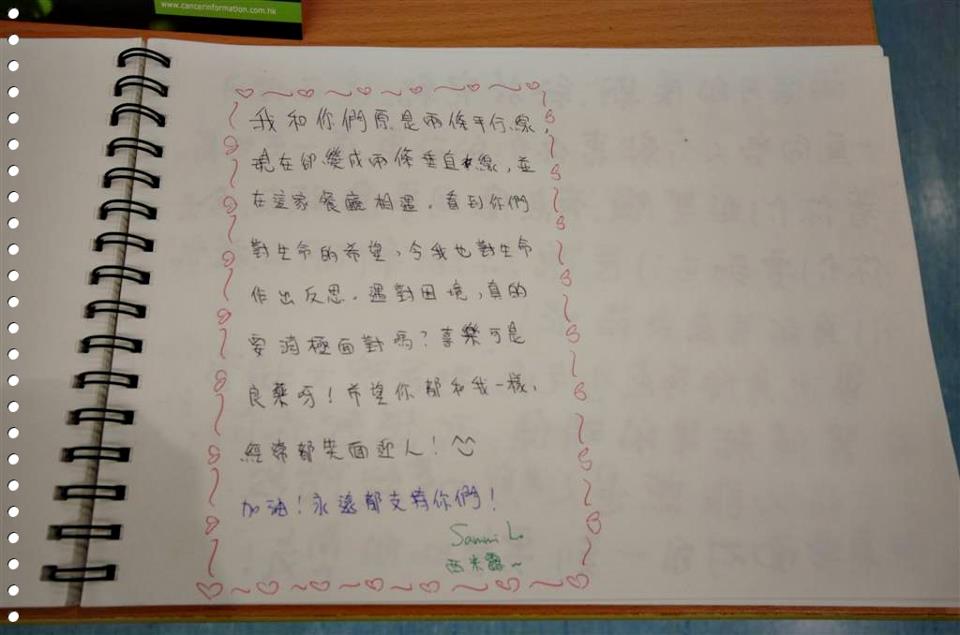 www.cancerinformation.com.hk
我和你們原是兩條平行線，
現在卻變成兩條垂直線，並
在這家餐廳相遇。看到你們
對生命的希望，令我也對生命
作出反思。遇對困境，真的
要消極面對嗎？喜樂可是
良藥呀！希望你都和我一樣，
經常都笑面迎人！
加油！永遠都支持你們！
Sammi L.
西米露~